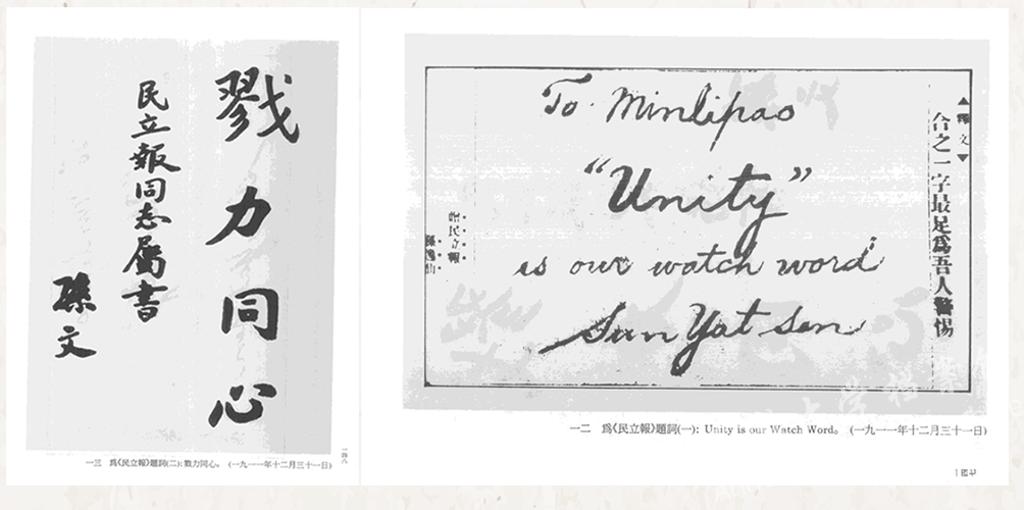 戮力同心
民立報同志屬書
孫文
一三 爲〈民立報〉題詞(二):戮力同心。(一九一一年十二月三十一日)
▲譯文▼
合之一字最足爲吾人警惕
To Minlipao
“Unity”
is our watch word
Sun Yat Sen
民立報
孫逸仙
一二 爲〈民立報〉題詞(一): Unity is our Watch Word。(一九一一年十二月三十一日)